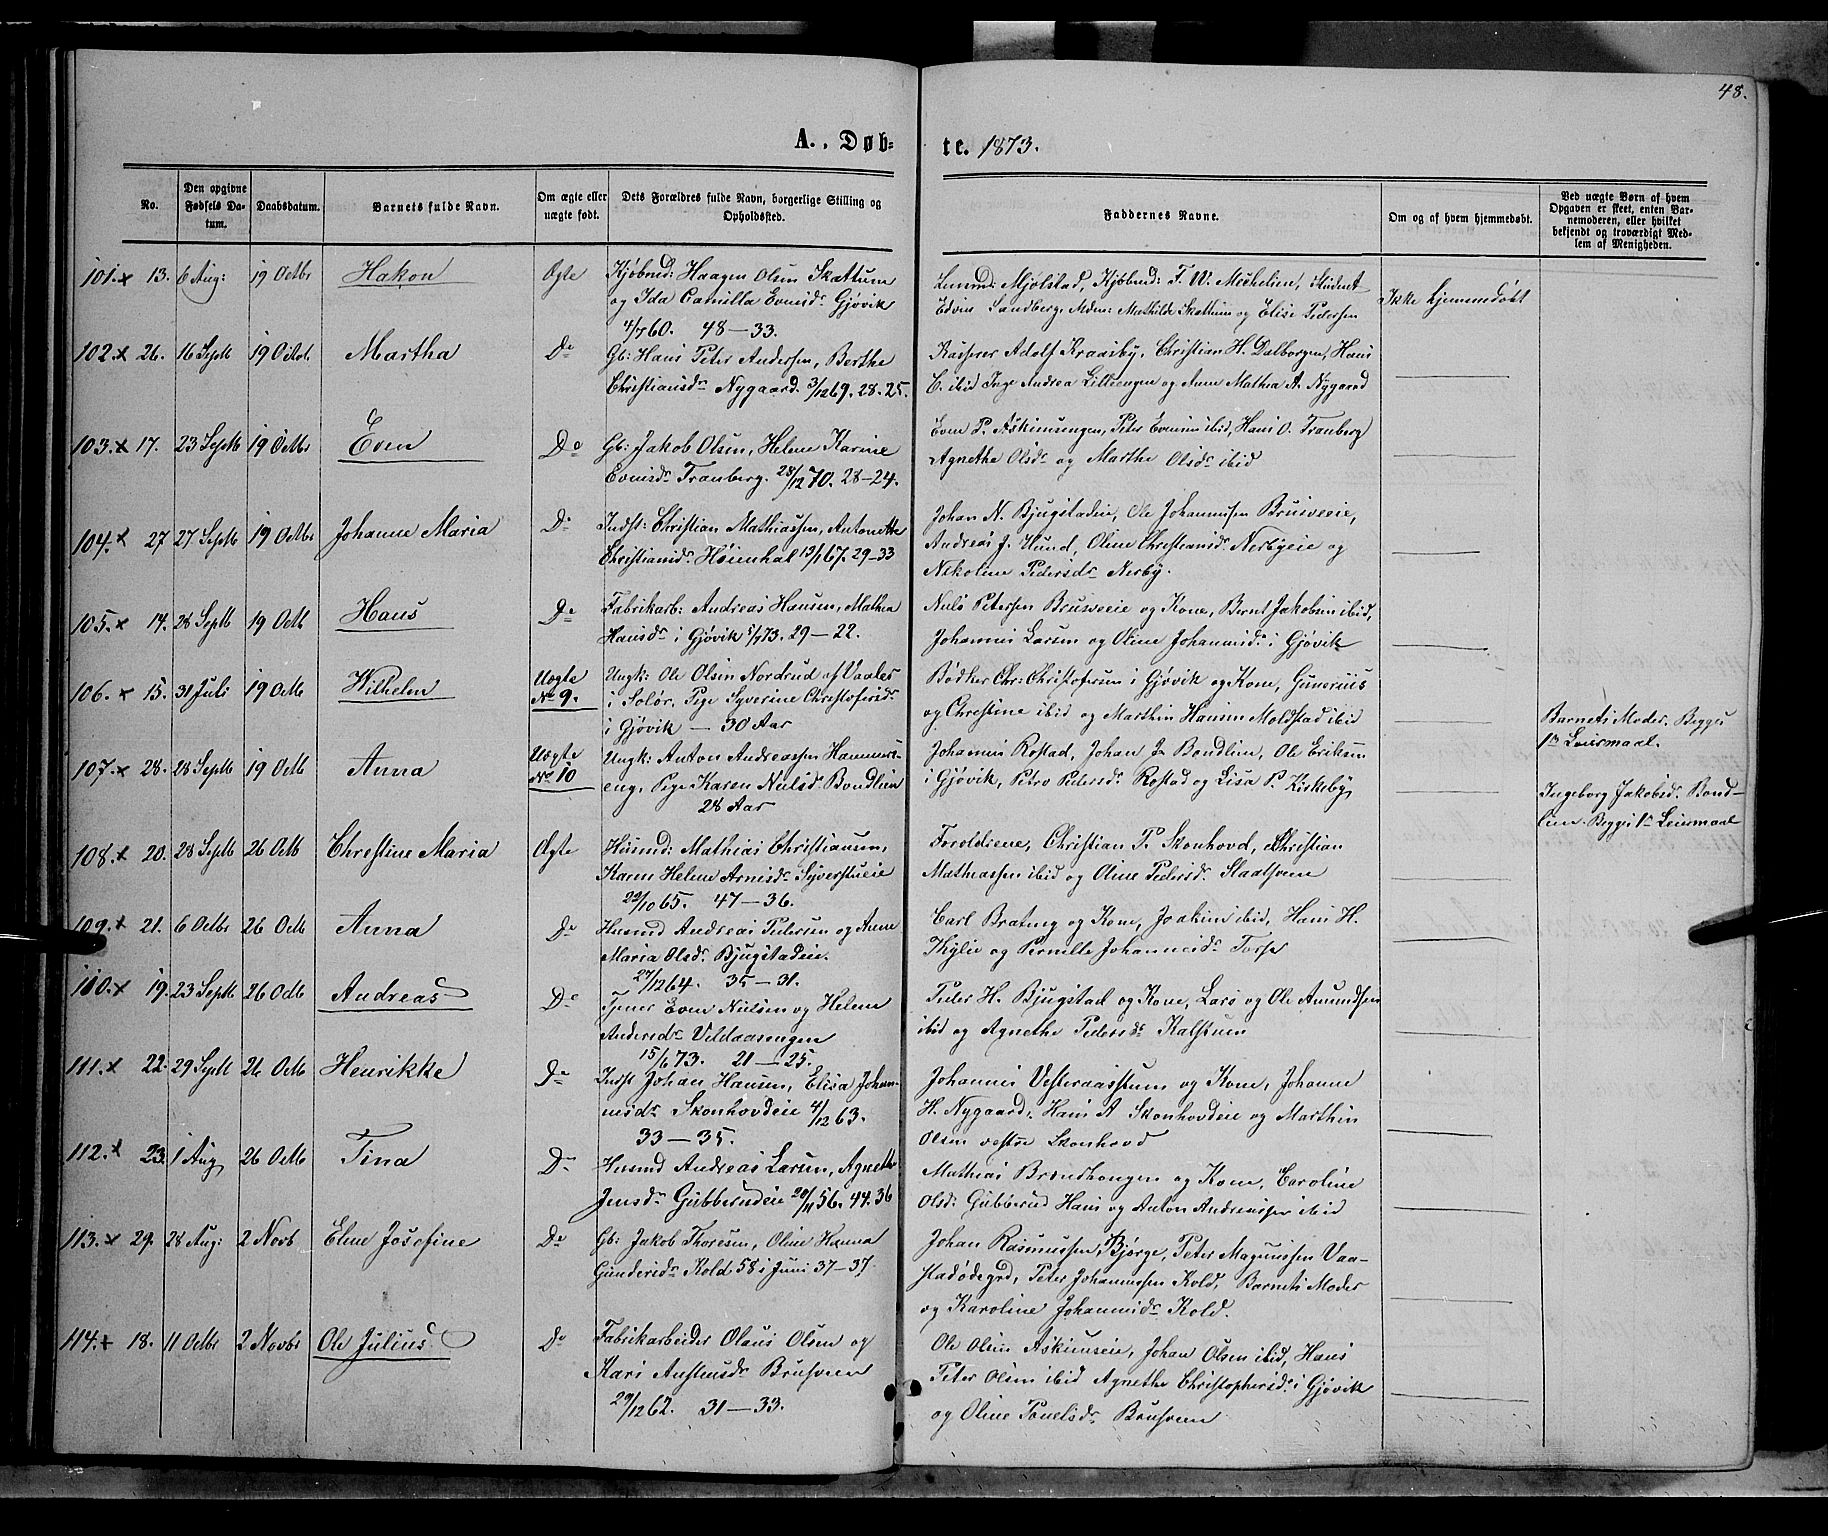 48.
A. Døb=
te. 1873.
No.
Den opgivne
Fødsels Da-
tum.
Daabsdatum.
Barnets fulde Navn.
Om ægte eller
uægte født.
Dets Forældres fulde Navn, borgerlige Stilling og
Opholdssted.
Faddernes Navne.
Om og af hvem hjemmedøbt.
Ved uægte Børn af hvem
Opgaven er skeet, enten Bar-
nemoderen, eller hvilket
bekjendt og troværdigt Med-
lem af Menigheden.
101. x 13. 6 Aug: 19 Octbr Hakon Ægte Kjøbmd: Haagen Olsen Skattum
og Ida Camilla Evensdr Gjøvik
4/7 60. 48-33.
Lensmd: Mjølstad, Kjøbmd: F. W. Mechelien, Student
Edvin Sandberg, Mdm: Mathilde Skattum og Elise Pedersen
Ikke hjemmedøbt
102. x 26. 16 Septb 19 Octob. Martha Do Gb: Hans Peter Andersen, Berthe
Christiansdr Nygaard. 3/12 69. 28-25.
Kasserer Adolf Kraasby, Christian H. Dalborgen, Hans
C. ibid Inge Andrea Lilleengen og Anne Mathea A. Nygaard
103. x 17. 23 Septb 19 Octbr Even Do Gb: Jakob Olsen, Helene Karine
Evensdr Tranberg. 28/12 70. 28-24.
Even P. Askimsengen, Peter Evensen ibid, Hans O. Tranberg
Agnethe Olsdr og Marthe Olsdr ibid
104. x 27 27 Septb 19 Octbr Johanne Maria Do Indst: Christian Mathiassen, Antonette
Christiansdr Høienhal 13/1 67. 29-33
Johan N. Bjugstadeie, Ole Johannessen Brusveeie,
Andreas J. Hund, Oline Christiansdr Nerbyeie og
Nikoline Pedersdr Nerby.
105. x 14. 28 Septb 19 Octb Hans Do Fabrikarb: Andreas Hansen, Mathea
Hansdr i Gjøvik 5/7 73. 29-22.
Nils Petersen Brusveeie og Kone, Bernt Jakobsen ibid,
Johannes Larsen og Oline Johannesdr i Gjøvik
106. x 15. 31 Juli 19 Octb Wilhelm Uægte
No 9.
Ungk: Ole Olsen Nordrud af Vaaler
i Solør, Pige Syverine Christofersdr
i Gjøvik - 30 Aar
Bødker Chr: Christofersen i Gjøvik og Kone, Gunerius
og Christine ibid og Marthin Hansen Moldstad ibid
Barnets Moder. Begges
1ste Leiermaal.
107. x 28. 28 Septb 19 Octb Anna Uægte
No 10
Ungk: Anton Andreassen Hammers-
eng, Pige Karen Nielsdr Bondlien
28 Aar
Johannes Rostad, Johan Jr Bondlien, Ole Eriksen
i Gjøvik, Petro Pedersdr Rostad og Lisa P. Kirkeby
Ingeborg Jakobsdr Bond-
lien. Begges 1ste Leiermaal
108. x 20. 28 Septb 26 Octb Christine Maria Ægte Husmd: Mathias Christiansen,
Karen Helene Arnesdr Syverstueie
22/10 65. 47-36.
Foreldrene, Christian P. Skonhovd, Christian
Mathiassen ibid og Oline Pedersdr Slaatsveen
109. x 21. 6 Octbr 26 Octb Anna Do Husmd Andreas Pedersen og Anne
Maria Olsdr Bjugstadeie.
27/12 64. 35-31.
Carl Brateng og Kone, Joakim ibid, Hans H.
Thylie og Pernille Johannesdr Torse
110. x 19. 23 Septb 26 Octb Andreas Do Tjener Even Nielsen og Helene
Andersdr Veldaasengen
15/6 73. 21-25.
Peder H. Bjugstad og Kone, Lars og Ole Amundsen
ibid og Agnethe Pedersdr Kalstuen
111. x 22. 29 Septb 26 Octb Henrikke Do Indst Johan Hansen, Elisa Johan-
nesdr Skonhovdeie 4/12 63.
33-35.
Johannes Vesteraasstuen og Kone, Johanne
H. Nygaard, Hans A Skonhovdeie og Marthin
Olsen vestre Skonhovd
112. x 23. 1 Aug 26 Octb Tina Do Husmd Andreas Larsen, Agnethe
Jensdr Gubberudeie 20/11 56. 44.36
Mathias Brøndhongen og Kone, Caroline
Olsd: Gubberud Hans og Anton Andreassen ibid
113. x 29. 28 Aug: 2 Novb Elene Josefine Do Gb: Jakob Thoresen, Oline Hanna
Gundersdr Kold 58 i Juni 37-37
Johan Rasmussen Bjørge, Peter Magnussen Vaa-
stadødegrd, Peter Johannessen Kold, Barnets Moder
og Karoline Johannesdr Kold.
114. x 18. 11 Octbr 2 Novbr Ole Julius Do Fabrikarbeider Olaus Olsen og
Kari Austensdr Brusveen
29/12 62. 31-33.
Ole Olsen Askimseie, Johan Olsen ibid, Hans
Peter Olsen ibid Agnethe Christophersdr i Gjøvik
og Oline Ponelsdr Brusveen